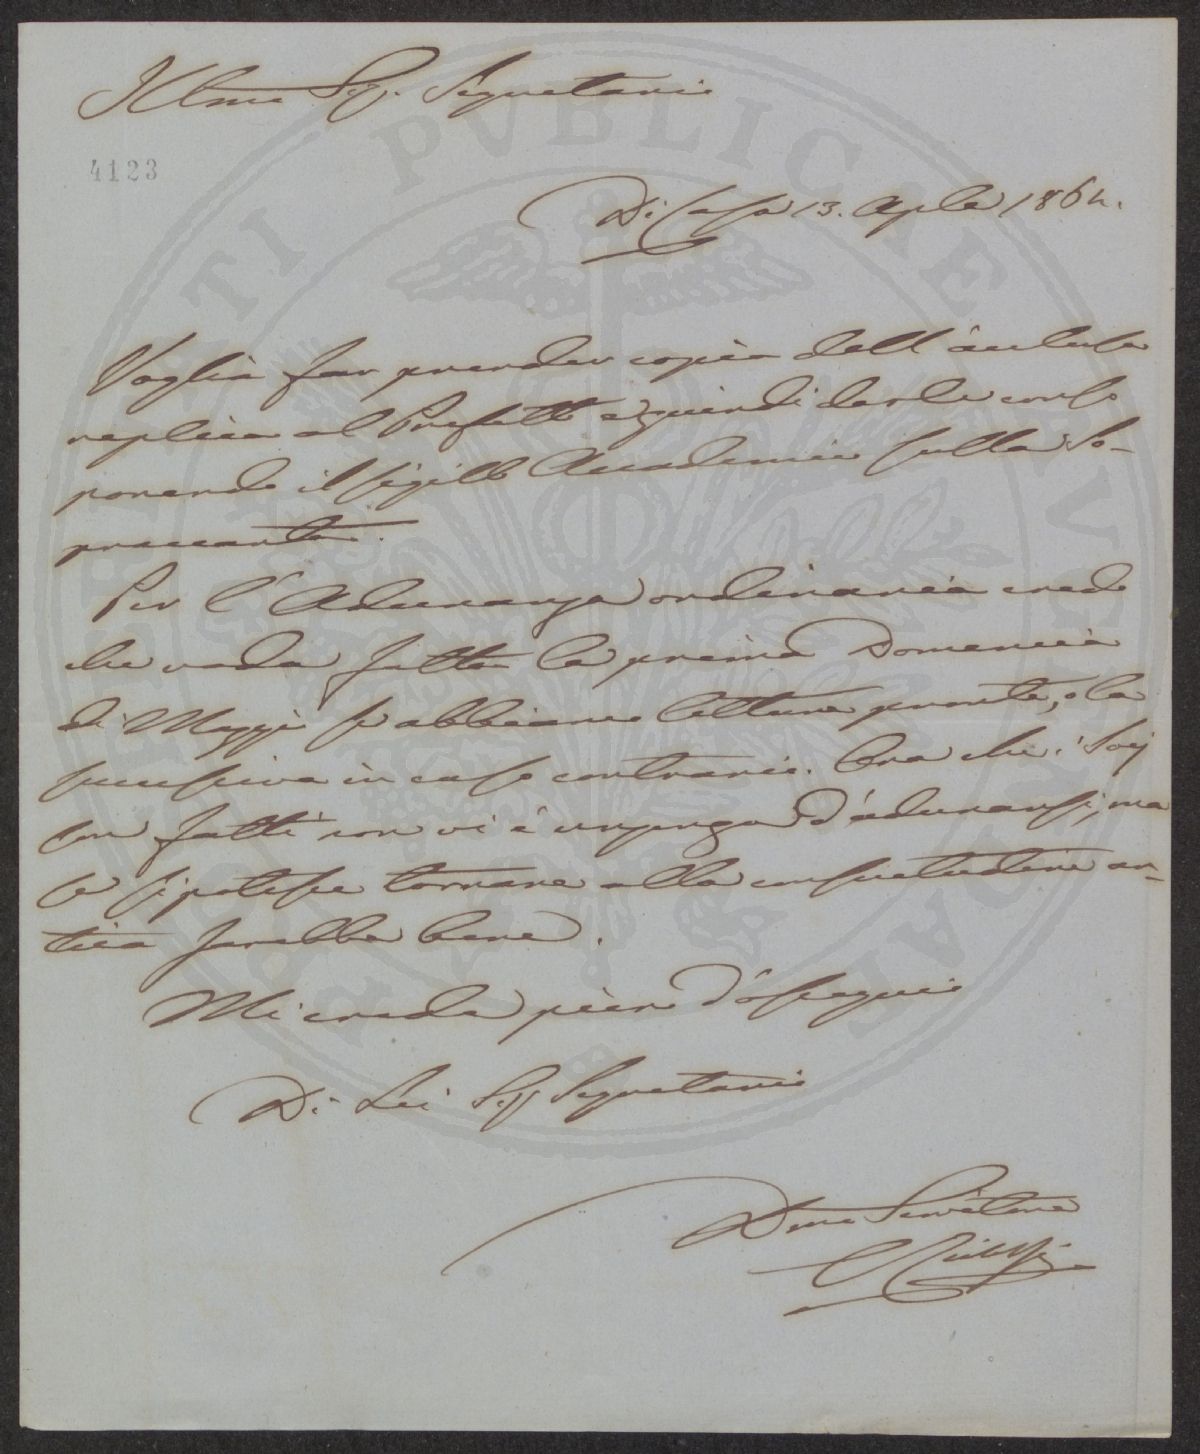 Ill.mo Sig. Segretario
4123
Di Casa 13. Aple 1864.
Voglia far prender copia dell'acclusa
replica al Prefetto e quindi darle corso
ponendo il sigillo Accademico sulla so-
praccarta.
Per l'Adunanza ordinaria credo
che vada fatta la prima Domenica
di Maggio se abbiamo letture pronte, o la
successiva in caso contrario. Ora che i Socj
son fatti non vi è urgenza d'adunarsi, ma
se si potesse tornare alla consuetudine an-
tica sarebbe bene.
Mi creda pieno d'ossequio
Di Lei Sig Segretario
Dmo Servitore
PERITI PVBLICAE